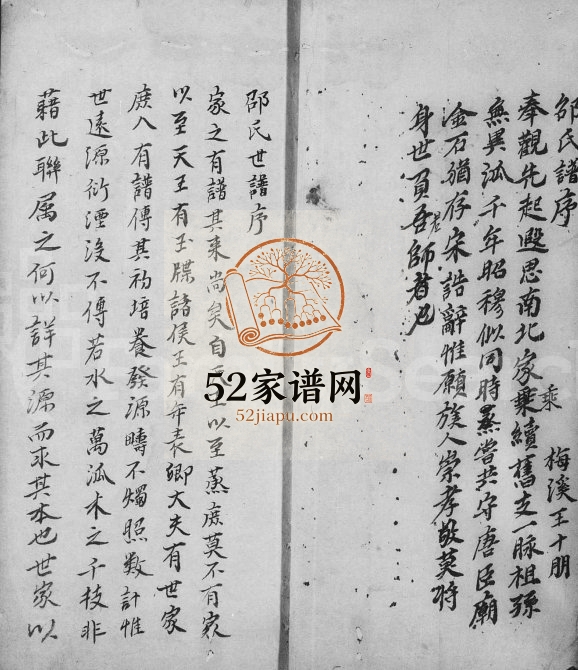 邵氏譜序
乘 梅溪王十朋
奉觀先起遐思南北家乘續舊支一脉祖孫
無異派千年昭穆似同時蒸嘗共守唐臣廟
金石猶存宋誥辭惟願族人崇孝敬莫将
身世負吾師者也
邵氏世譜序
家之有譜其来尚矣自天王以至蒸庶莫不有家
以至天王有玉牒諸侯王有年表卿大夫有世家
庶人有譜傳其初培養發源疇不燭照数計惟
世遠源衍湮没不傳若水之萬派木之千枝非
藉此聯属之何以詳其源而求其本也世家以
52家谱网
52jiapu.com